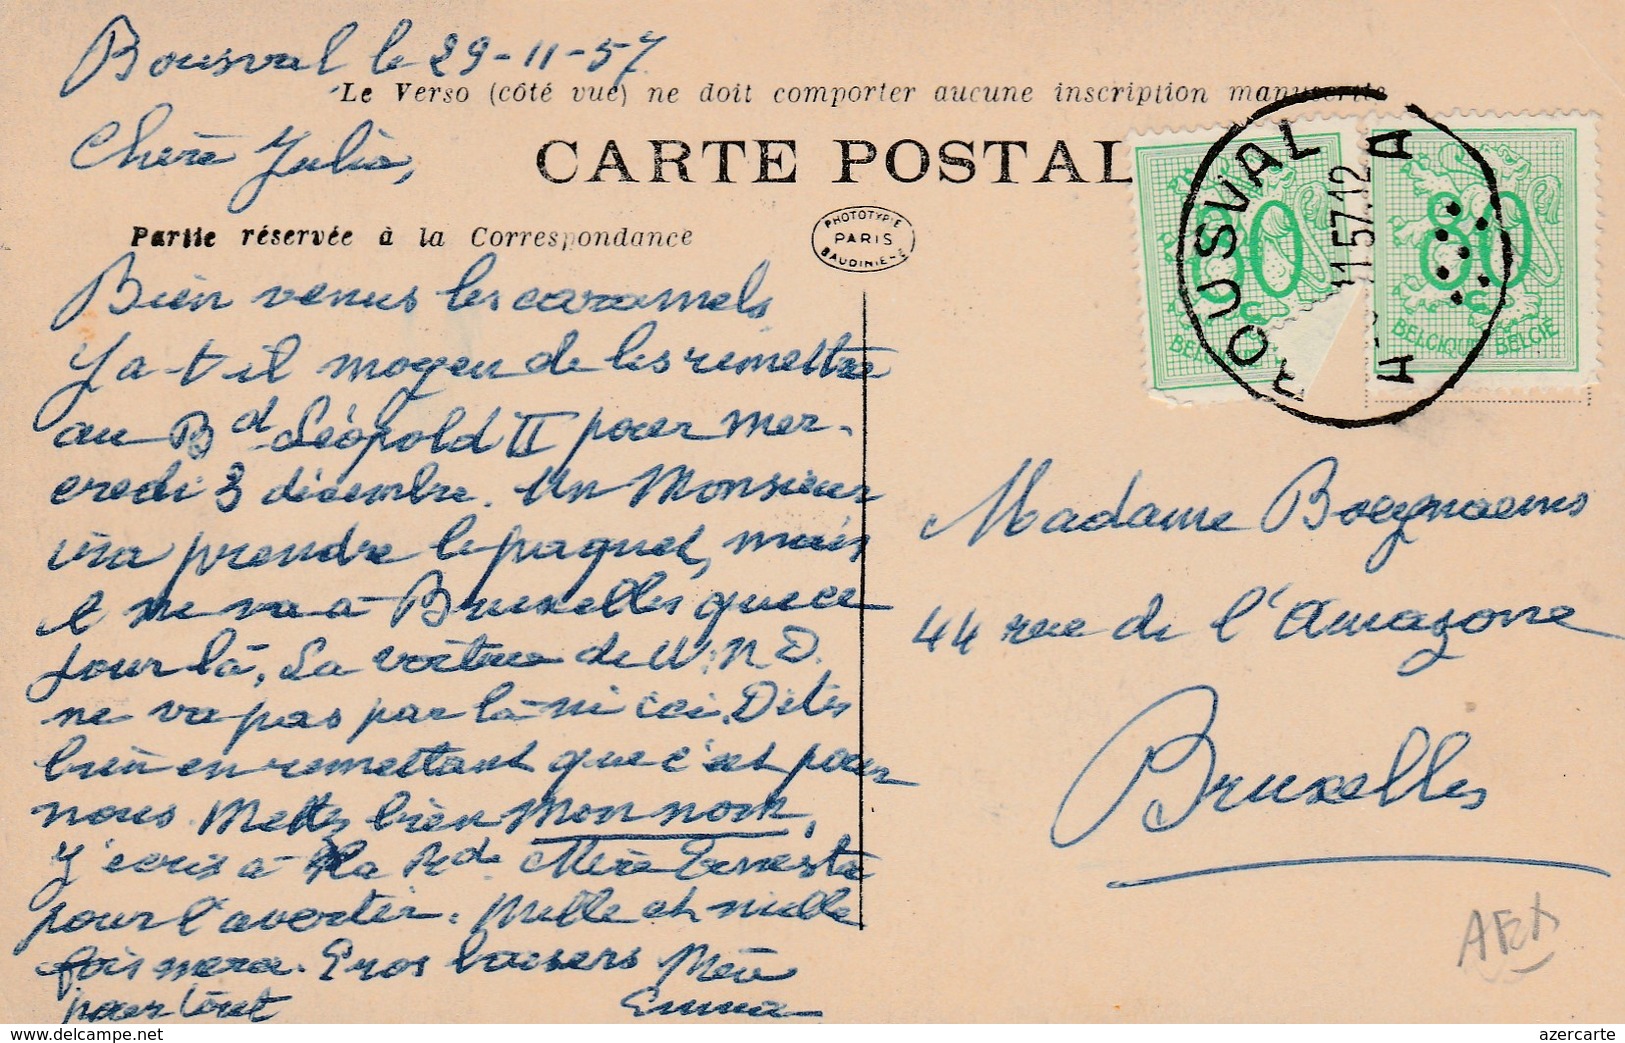 Bousval le 29-11-57.
Le Verso (côté vue) ne doit comporter aucune inscription manuscrite
Chère Julia,
CARTE POSTAL
Partie réservée à la Correspondance
PHOTOTYPIE
PARIS
BAUDINIERE
BOUSVAL
11 57.12
A
80
BELGIQUE
80
BELGIQUE-BELGIE
Bien venus les caramels
Y a-t-il moyen de les remettre
au Bd Léopold II pour mer-
credi 3 décembre. Un Monsieur
ira prendre le paquet, mais
il ne va à Bruxelles que ce
jour là. La voiture de N. D.
ne va pas par là ni ici. Dites
bien en remettant que c'est pour
nous. Mettez bien mon nom,
J'écris à la Rde Mère Ernesta
pour l'avertir. Mille et mille
fois merci. Gros baisers Merci
pour tout
Emma
Madame Boeynaems
44 rue de l'Amazone
Bruxelles
azercarte.com
azercarte